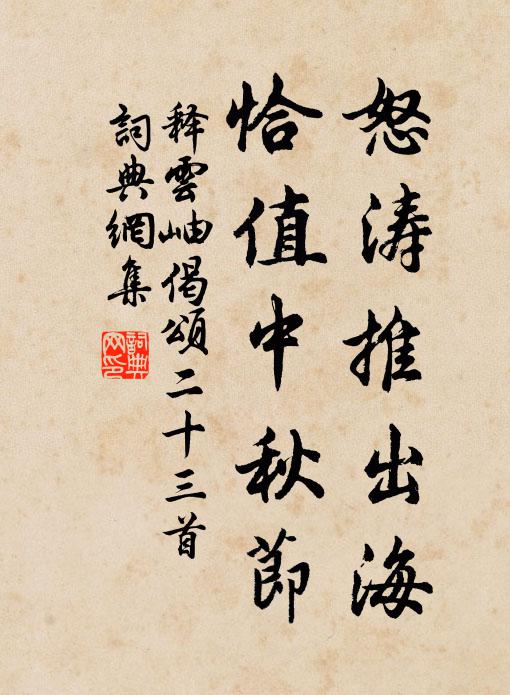 怒涛推出海
恰值中秋節
释雲岫偈頌二十三首
詞典網集
詞典網印